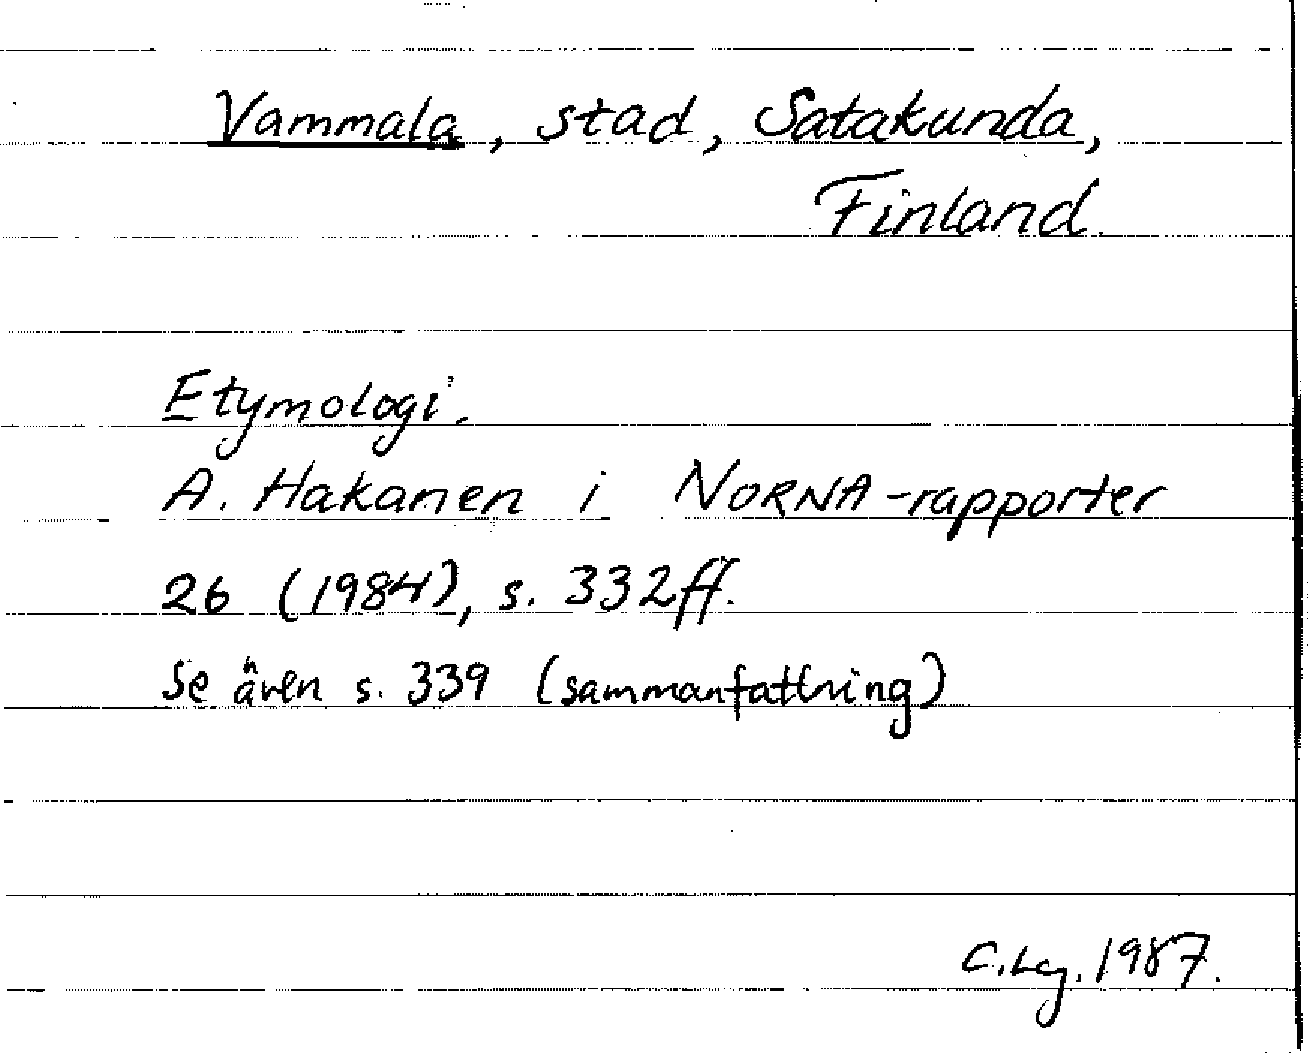 Vammala, stad, Satakunda,
Finland.
Etymologi.
A. Hakanen i NORNA-rapporter
26 (1984), s. 332ff.
Se även s. 339 (sammanfattning)
C.Lg. 1987.